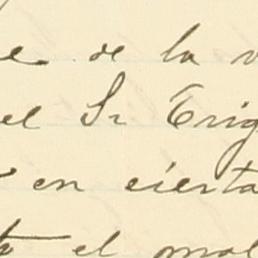 e de la v
el Sr Trig
en cierta
el mol